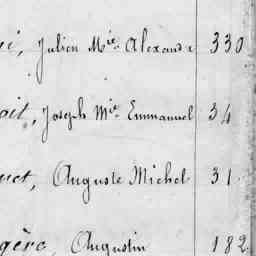 i, Julien Mie Alexandre 330
oit, Joseph Mie Emmanuel 34
uet, Auguste Michel 31
gère, Augustin 182